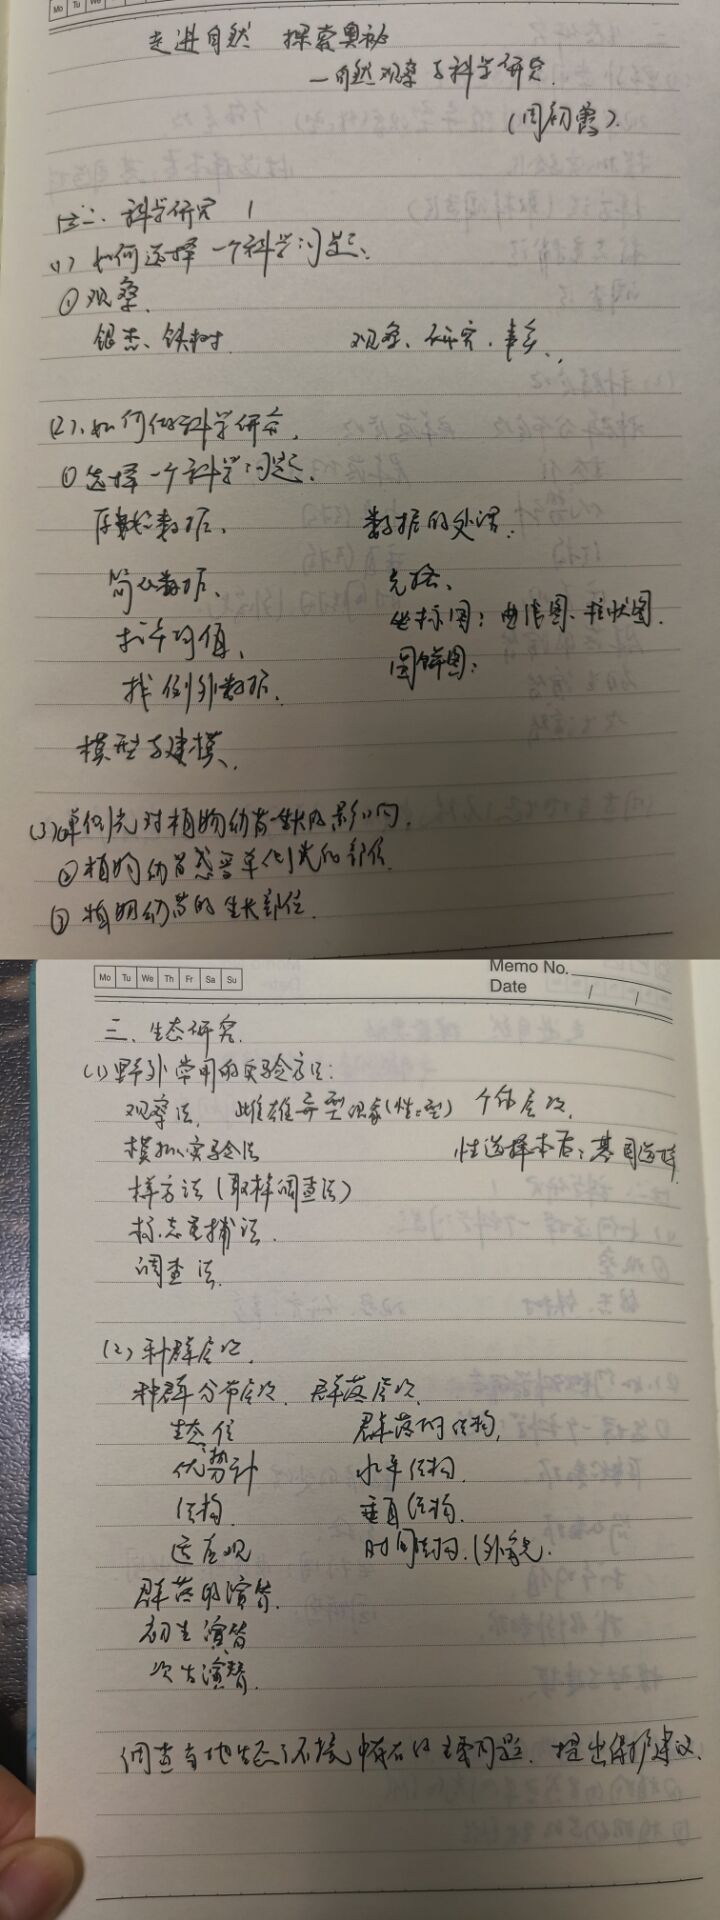 Mo Tu We
走进自然 探索奥秘
—自然观察与科学研究.
(周初霞).
二、科学研究
(1) 如何选择一个科学问题、
① 观察.
银杏、铁树. 观察、研究、
(2)、如何做科学研究.
① 选择一个科学问题.
原始数据、 数据的处理:
简化数据、 表格、
找平均值、 坐标图: 曲线图、柱状图.
找例外数据. 圆饼图:
模型与建模、
(3) 单侧光对植物幼苗生长的影响.
② 植物幼苗感受单侧光的部位.
③ 植物幼苗的生长部位.
Mo Tu We Th Fr Sa Su
Memo No.
Date / /
三、生态研究.
(1) 野外常用的实验方法:
观察法、雌雄异型现象(性二型) 个体层次.
模拟实验法 性选择本质: 基因选择
样方法 (取样调查法)
标志重捕法.
调查法.
(2) 种群层次.
种群分布层次、群落层次.
生态位 群落的结构,
优势种 水平结构.
结构. 垂直结构.
时间结构.
群落的演替.
初生演替
次生演替.
调查当地生态环境中存在的主要问题、提出保护建议.